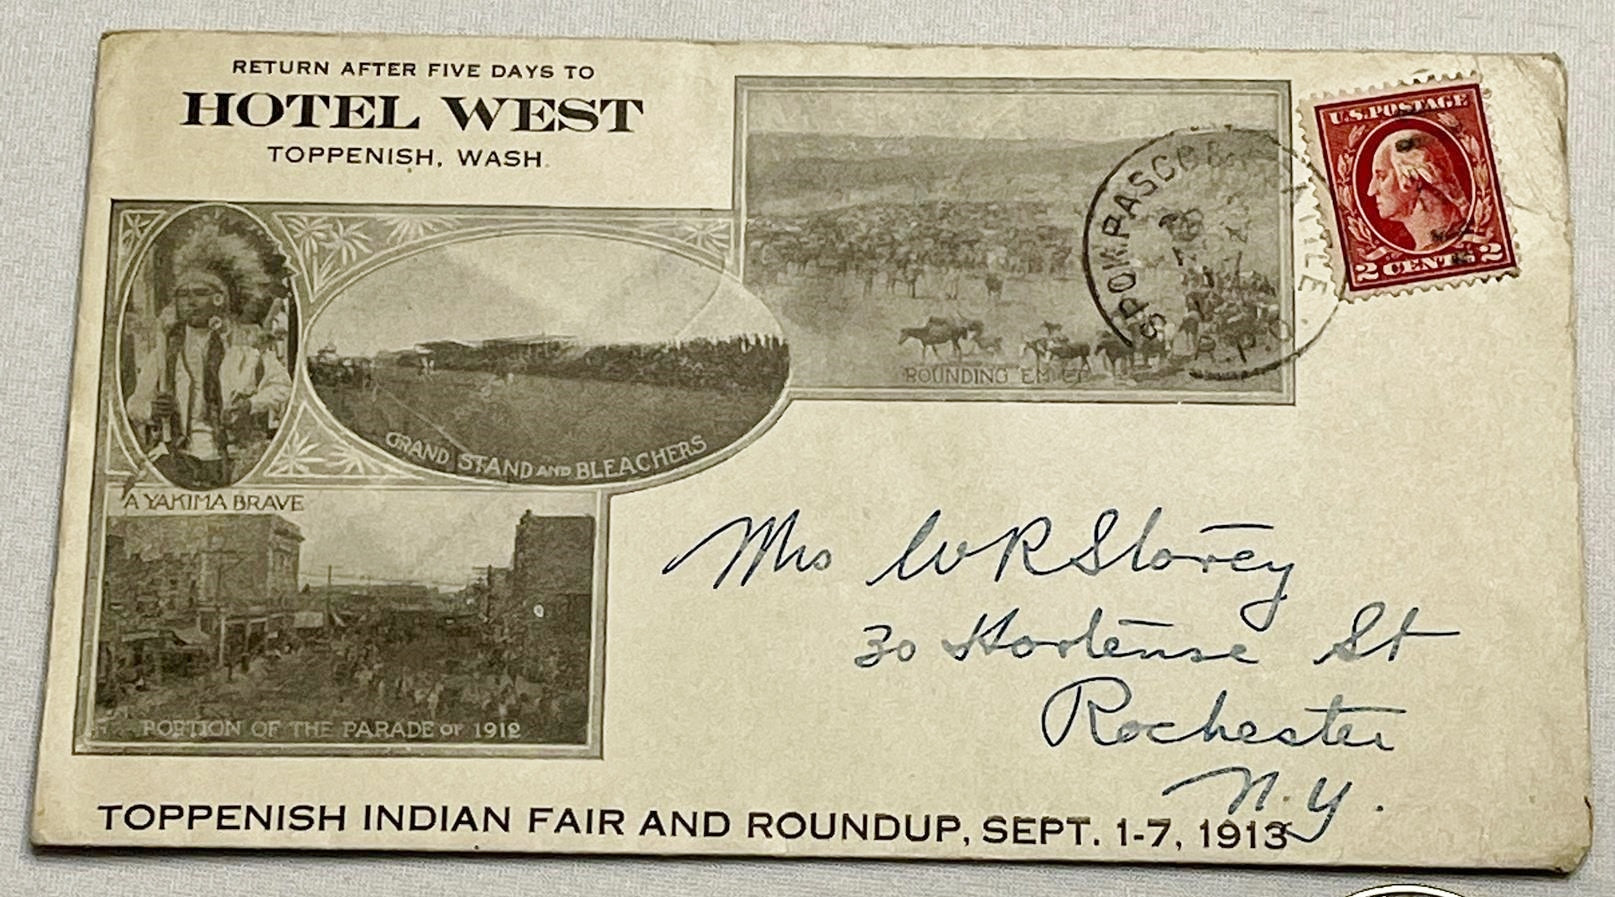 RETURN AFTER FIVE DAYS TO
HOTEL WEST
TOPPENISH, WASH.
U.S. POSTAGE
2 CENTS 2
SPOK. PASCO & SEATTLE
R.P.O.
ROUNDING 'EM UP
GRAND STAND AND BLEACHERS
A YAKIMA BRAVE
PORTION OF THE PARADE OF 1912
Mrs W R Storey
30 Hortense St
Rochester
N.Y.
TOPPENISH INDIAN FAIR AND ROUNDUP, SEPT. 1-7, 1913